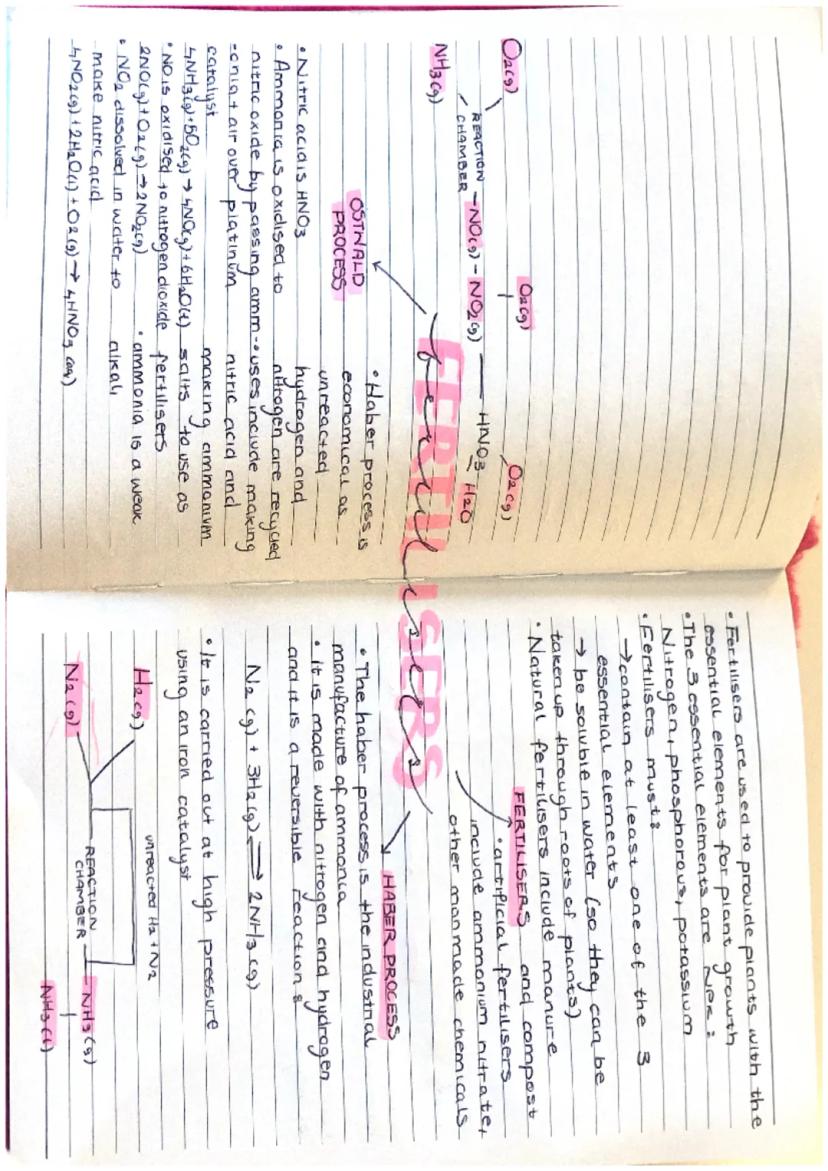 FERTILISERS
fertilisers
• Fertilisers are used to provide plants with the
essential elements for plant growth
• The 3 essential elements are NPK:
Nitrogen, phosphorous, potassium
• Fertilisers must:
→ contain at least one of the 3
essential elements
→ be soluble in water (so they can be
taken up through roots of plants)
• Natural fertilisers include manure
and compost
FERTILISERS
• artificial fertilisers
include ammonium nitrate +
other manmade chemicals
HABER PROCESS
• The haber process is the industrial
manufacture of ammonia
• It is made with nitrogen and hydrogen
and it is a reversible reaction:
N2(g) + 3H2(g) ⇌ 2NH3(g)
• It is carried out at high pressure
using an iron catalyst
unreacted H2 + N2
H2(g)
N2(g)
REACTION
CHAMBER
NH3(g)
NH3(l)
O2(g)
NH3(g)
REACTION
CHAMBER
– NO(g) – NO2(g)
O2(g)
HNO3
O2(g)
H2O
OSTWALD
PROCESS
• Nitric acid is HNO3
• Ammonia is oxidised to
nitric oxide by passing amm-
-onia + air over platinum
catalyst
4NH3(g) + 5O2(g) → 4NO(g) + 6H2O(l)
• NO is oxidised to nitrogen dioxide
2NO(g) + O2(g) → 2NO2(g)
• NO2 dissolved in water to
make nitric acid
4NO2(g) + 2H2O(l) + O2(g) → 4HNO3(aq)
• Haber process is
economical as
unreacted
hydrogen and
nitrogen are recycled
• uses include making
nitric acid and
making ammonium
salts to use as
fertilisers
• ammonia is a weak
alkali